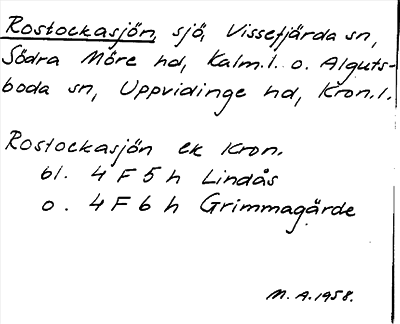 Rostockasjön, sjö, Vissefjärda sn,
Södra Möre hd, Kalm.l. o. Alguts-
boda sn, Uppvidinge hd, Kron.l.
Rostockasjön ek Kron.
bl. 4 F 5 h Lindås
o. 4 F 6 h Grimmagärde
M.A.1958.